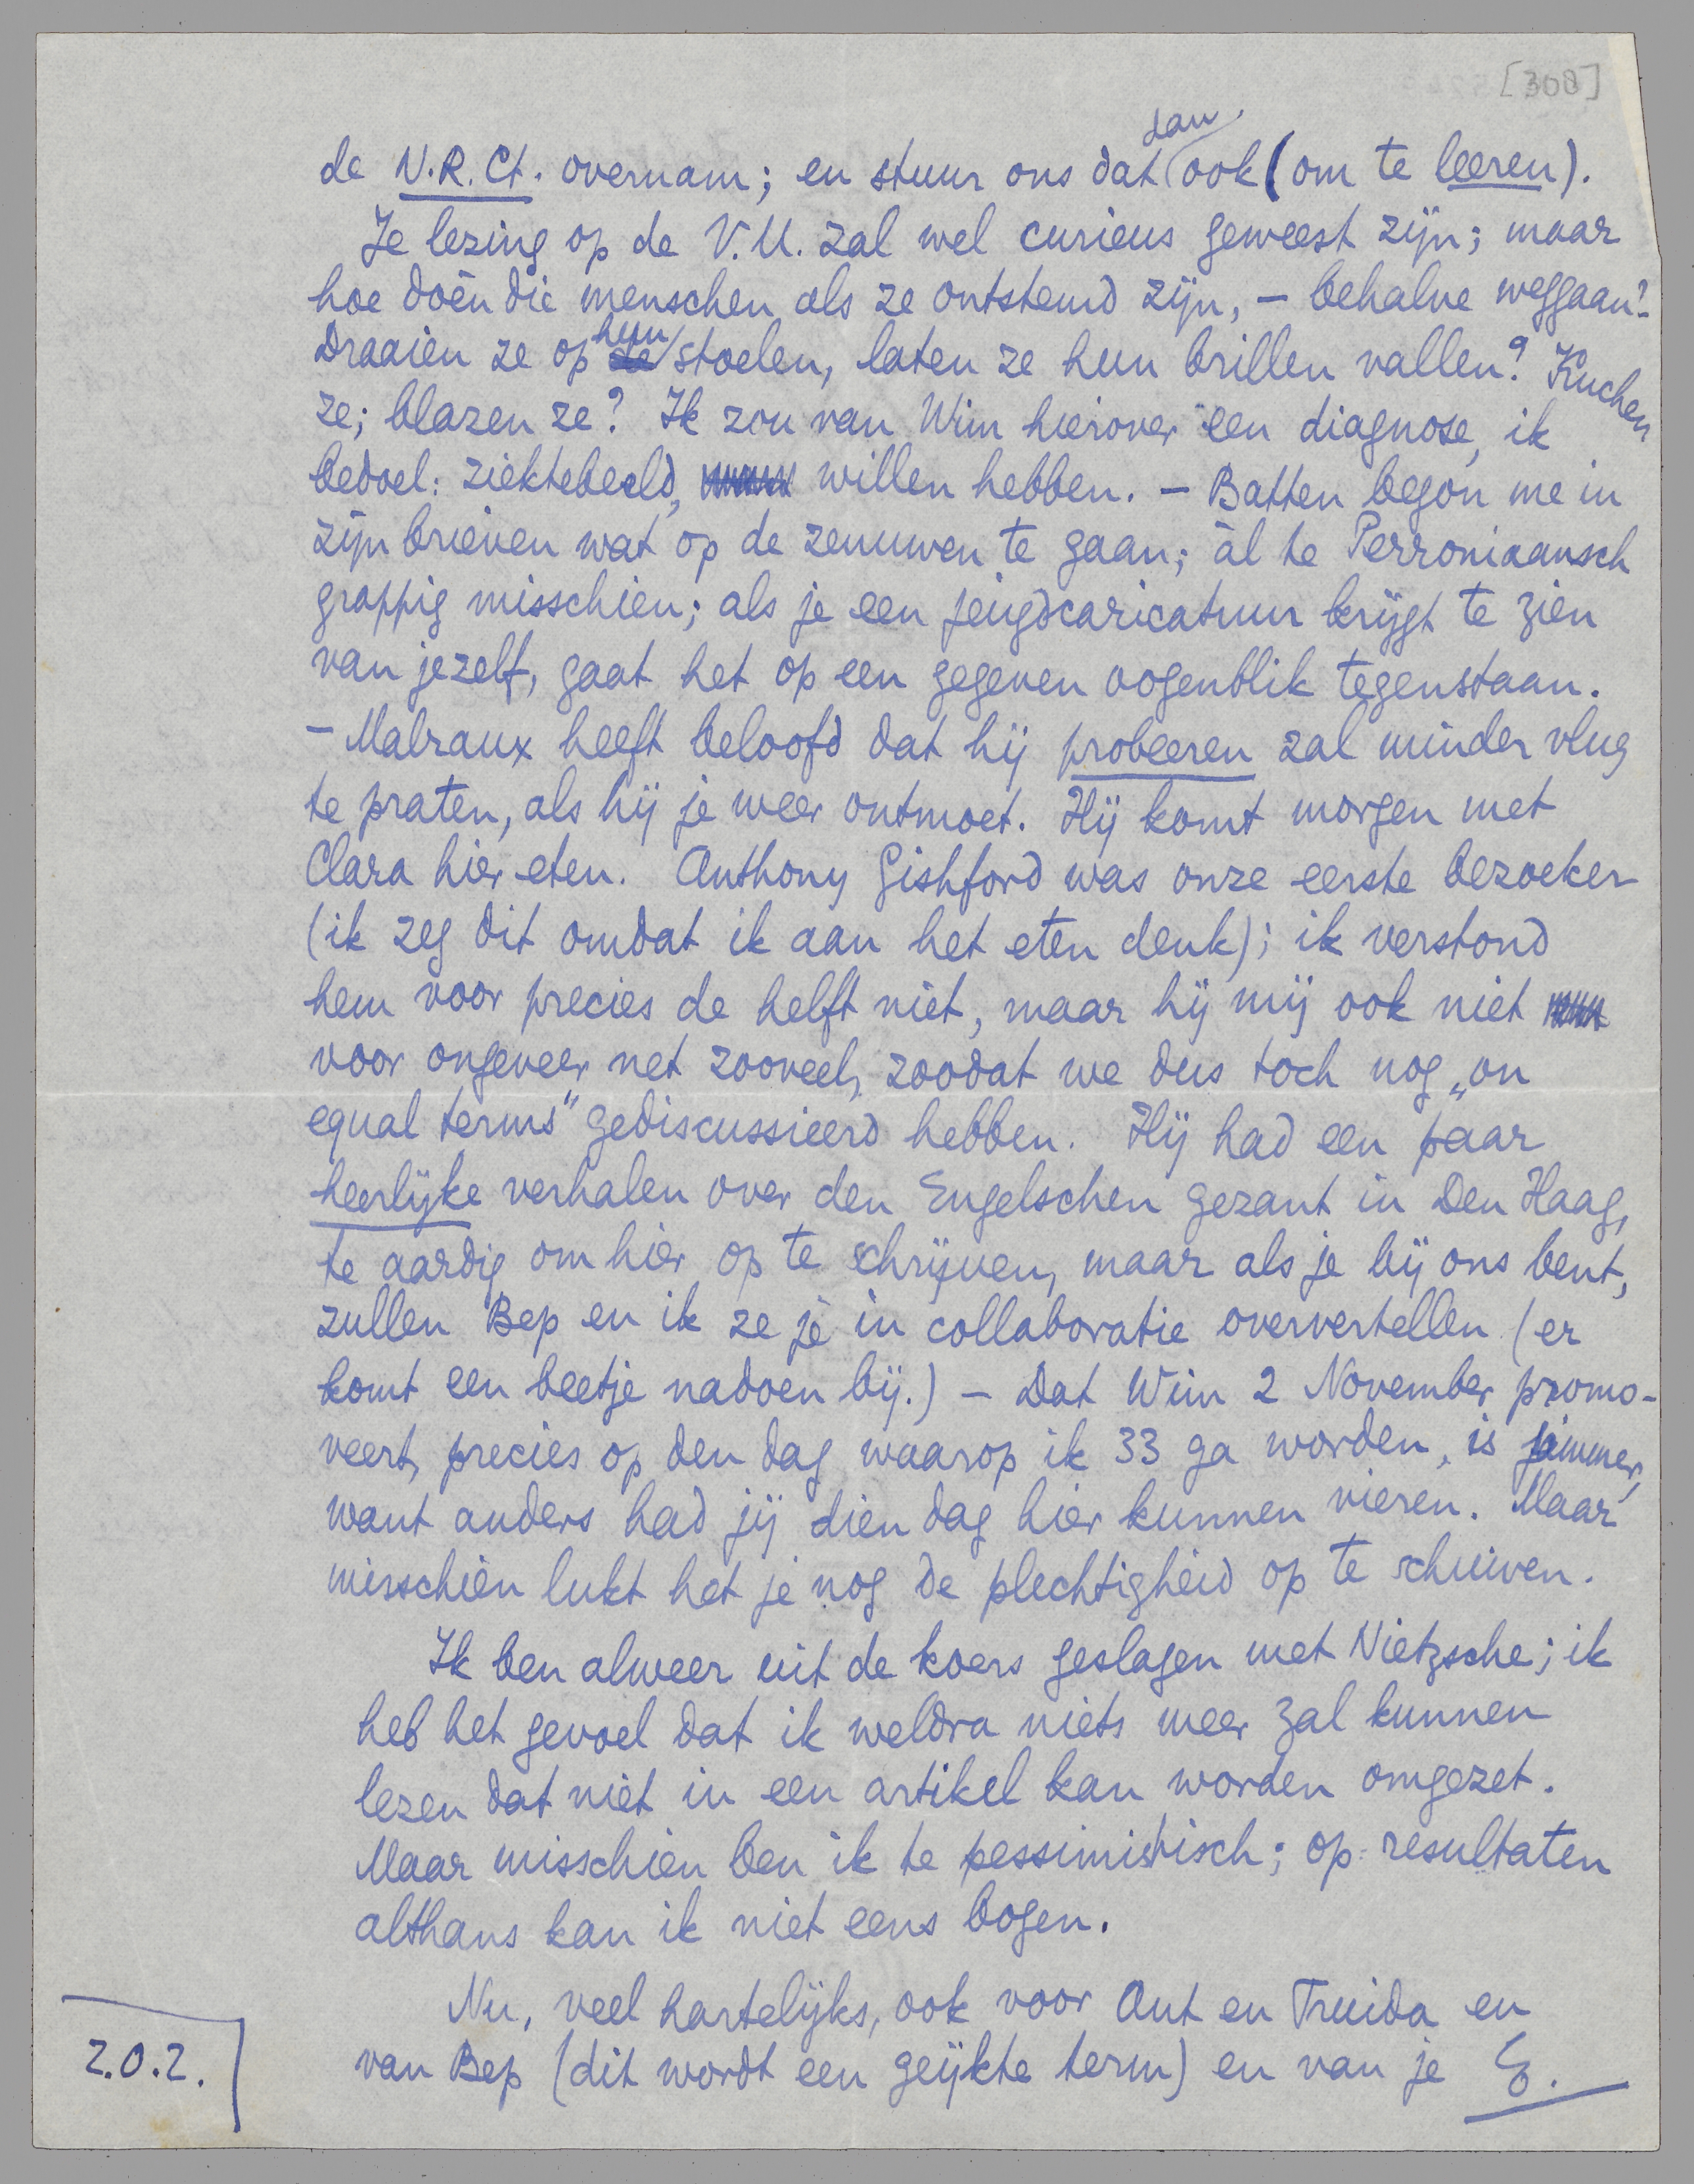 [308]
de N.R.Ct. overnam; en stuur ons dat dan ook (om te leeren).
Je lezing op de V.U. zal wel curieus geweest zijn; maar
hoe doén die menschen als ze ontstemd zijn, – behalve weggaan?
Draaien ze op hun stoelen, laten ze hun brillen vallen? Kuchen
ze; blazen ze? Ik zou van Wim hierover een diagnose, ik
bedoel: ziektebeeld, willen hebben. – Batten begon me in
zijn brieven wat op de zenuwen te gaan; àl te Perroniaansch
grappig misschien; als je een jeugdcaricatuur krijgt te zien
van jezelf, gaat het op een gegeven oogenblik tegenstaan.
– Malraux heeft beloofd dat hij probeeren zal minder vlug
te praten, als hij je weer ontmoet. Hij komt morgen met
Clara hier eten. Anthony Gishford was onze eerste bezoeker
(ik zeg dit omdat ik aan het eten denk); ik verstond
hem voor precies de helft niet, maar hij mij ook niet
voor ongeveer net zooveel, zoodat we dus toch nog „on
equal terms" gediscussieerd hebben. Hij had een paar
heerlijke verhalen over den Engelschen gezant in Den Haag,
te aardig om hier op te schrijven, maar als je bij ons bent,
zullen Bep en ik ze je in collaboratie oververtellen (er
komt een beetje nadoen bij.) – Dat Wim 2 November promo-
veert, precies op den dag waarop ik 33 ga worden, is jammer,
want anders had jij dien dag hier kunnen vieren. Maar
misschien lukt het je nog de plechtigheid op te schuiven.
Ik ben alweer uit de koers geslagen met Nietzsche; ik
heb het gevoel dat ik weldra niets meer zal kunnen
lezen dat niet in een artikel kan worden omgezet.
Maar misschien ben ik te pessimistisch; op resultaten
althans kan ik niet eens bogen.
Nu, veel hartelijks, ook voor Ant en Truida en
van Bep (dit wordt een geijkte term) en van je E.
Z.O.Z.